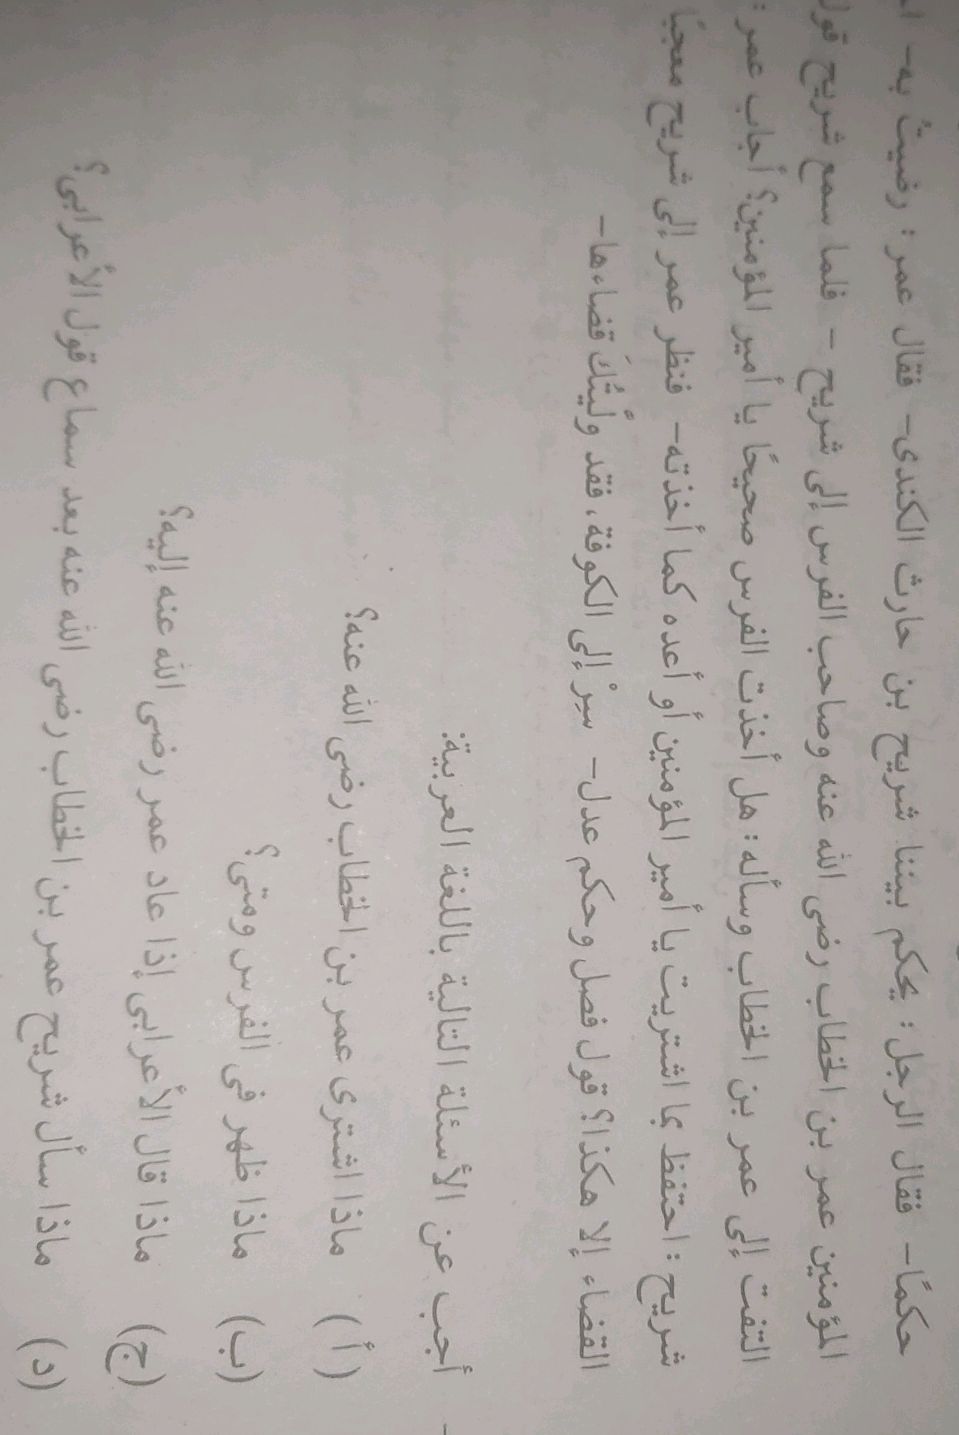 حكمًا- فقال الرجل: يحكم بيننا شريح بن حارث الكندى- فقال عمر: رضيتُ به-
المؤمنين عمر بن الخطاب رضى الله عنه وصاحب الفرس إلى شريح - فلما سمع شريح
التفت إلى عمر بن الخطاب وسأله: هل أخذت الفرس صحيحًا يا أمير المؤمنين؟ أجاب عمر:
شريح: احتفظ بما اشتريت يا أمير المؤمنين أو أعده كما أخذته- فنظر عمر إلى شريح معجبًا
القضاء إلا هكذا؟ قول فصل وحكم عدل- سِرْ إلى الكوفة، فقد ولّيْتُكَ قضاءها-
- أجب عن الأسئلة التالية باللغة العربية:
(أ) ماذا اشترى عمر بن الخطاب رضى الله عنه؟
(ب) ماذا ظهر فى الفرس ومتى؟
(ج) ماذا قال الأعرابى إذا عاد عمر رضى الله عنه إليه؟
(د) ماذا سأل شريح عمر بن الخطاب رضى الله عنه بعد سماع قول الأعرابى؟